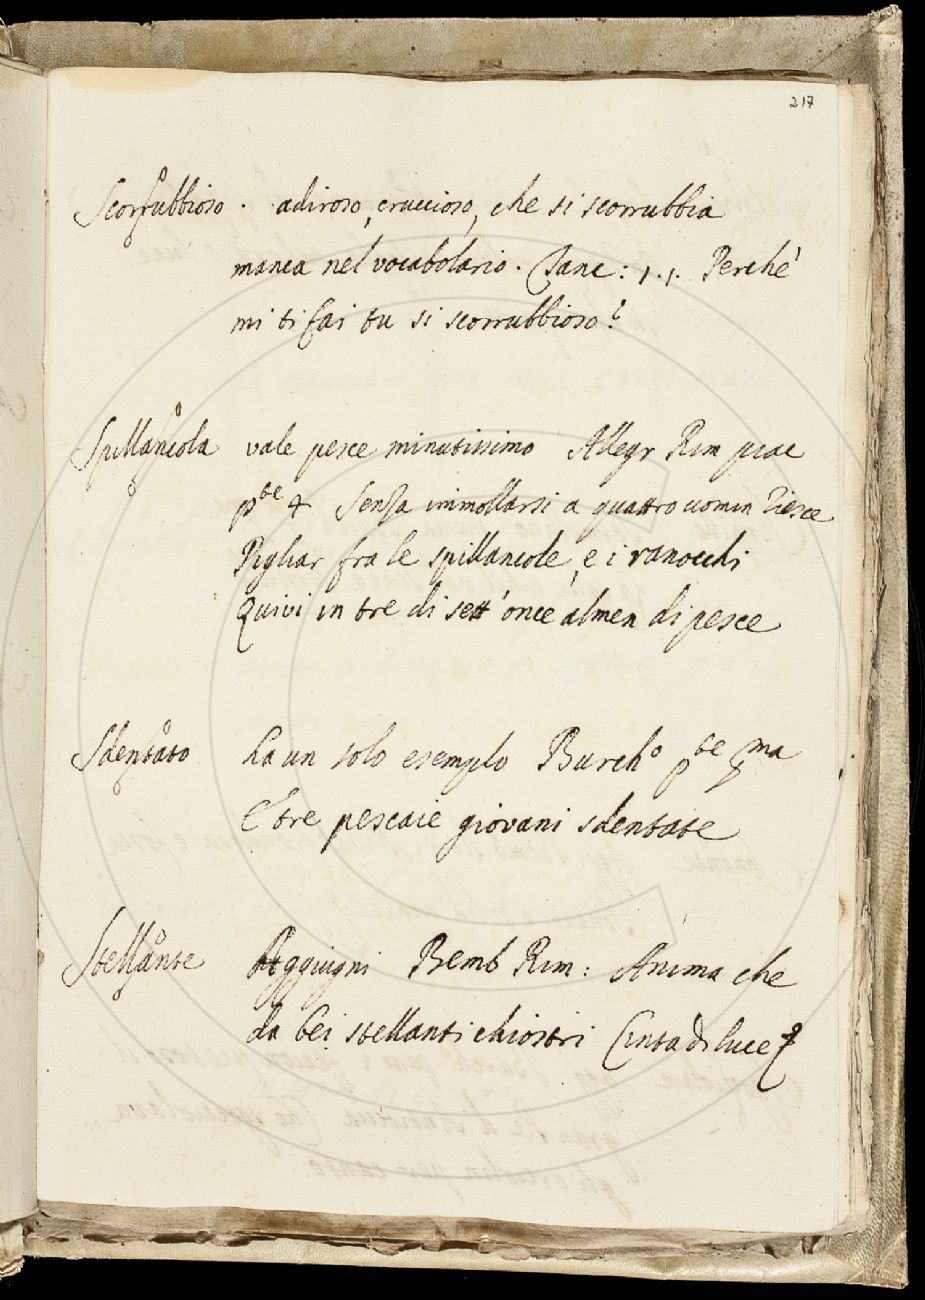 217
Scorrubbioso . adiroso, cruccioso, che si scorrubbia
manca nel vocabolario. Zanc: 1.1. Perche'
mi ti fai tu si scorrubbioso?
Spillancola vale pesce minutissimo Allegr Rim piac
pte 4 Senza immollarsi a quattro uomin riesce
Pigliar fra le spillancole, e i ranocchi
Quivi in tre di sett'once almen di pesce
Sdentato ha un solo esempio Burcho pte pma
E tre pescaie giovani sdentate
Stellante Aggiugni Bemb Rim: Anima che
da bei stellanti chiostri Cinta di luce